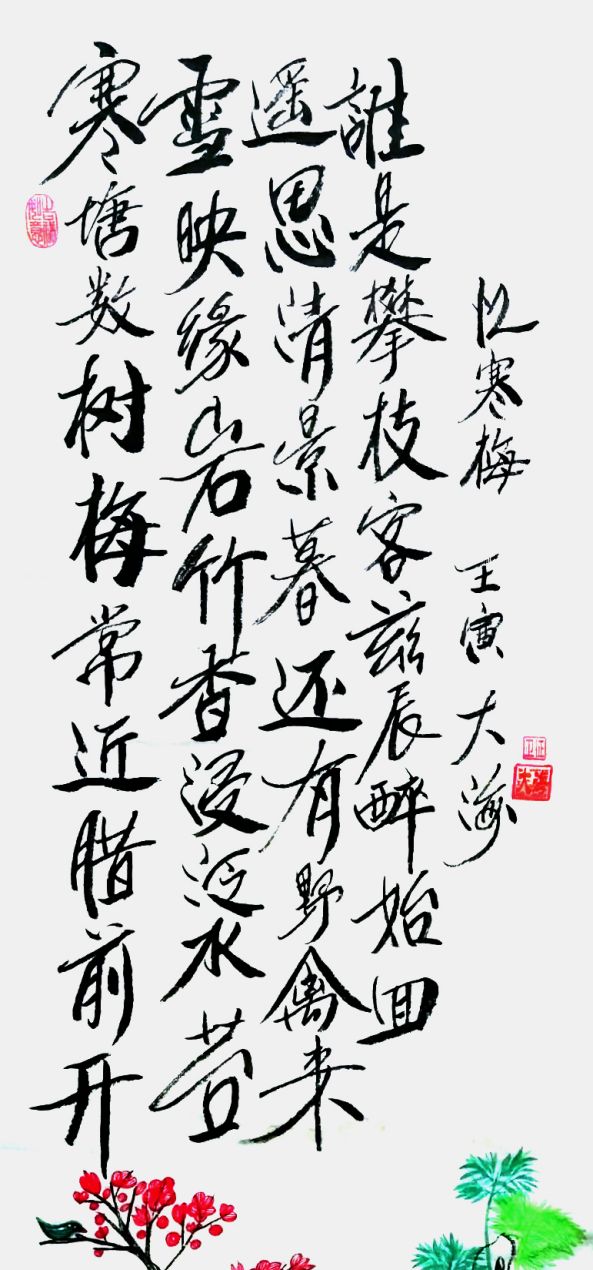 寒塘数树梅常近腊前开
雪映缘岩竹香浸泛水苔
遥思清景暮还有野禽来
誰是攀枝客兹辰醉始回
忆寒梅 壬寅 大海